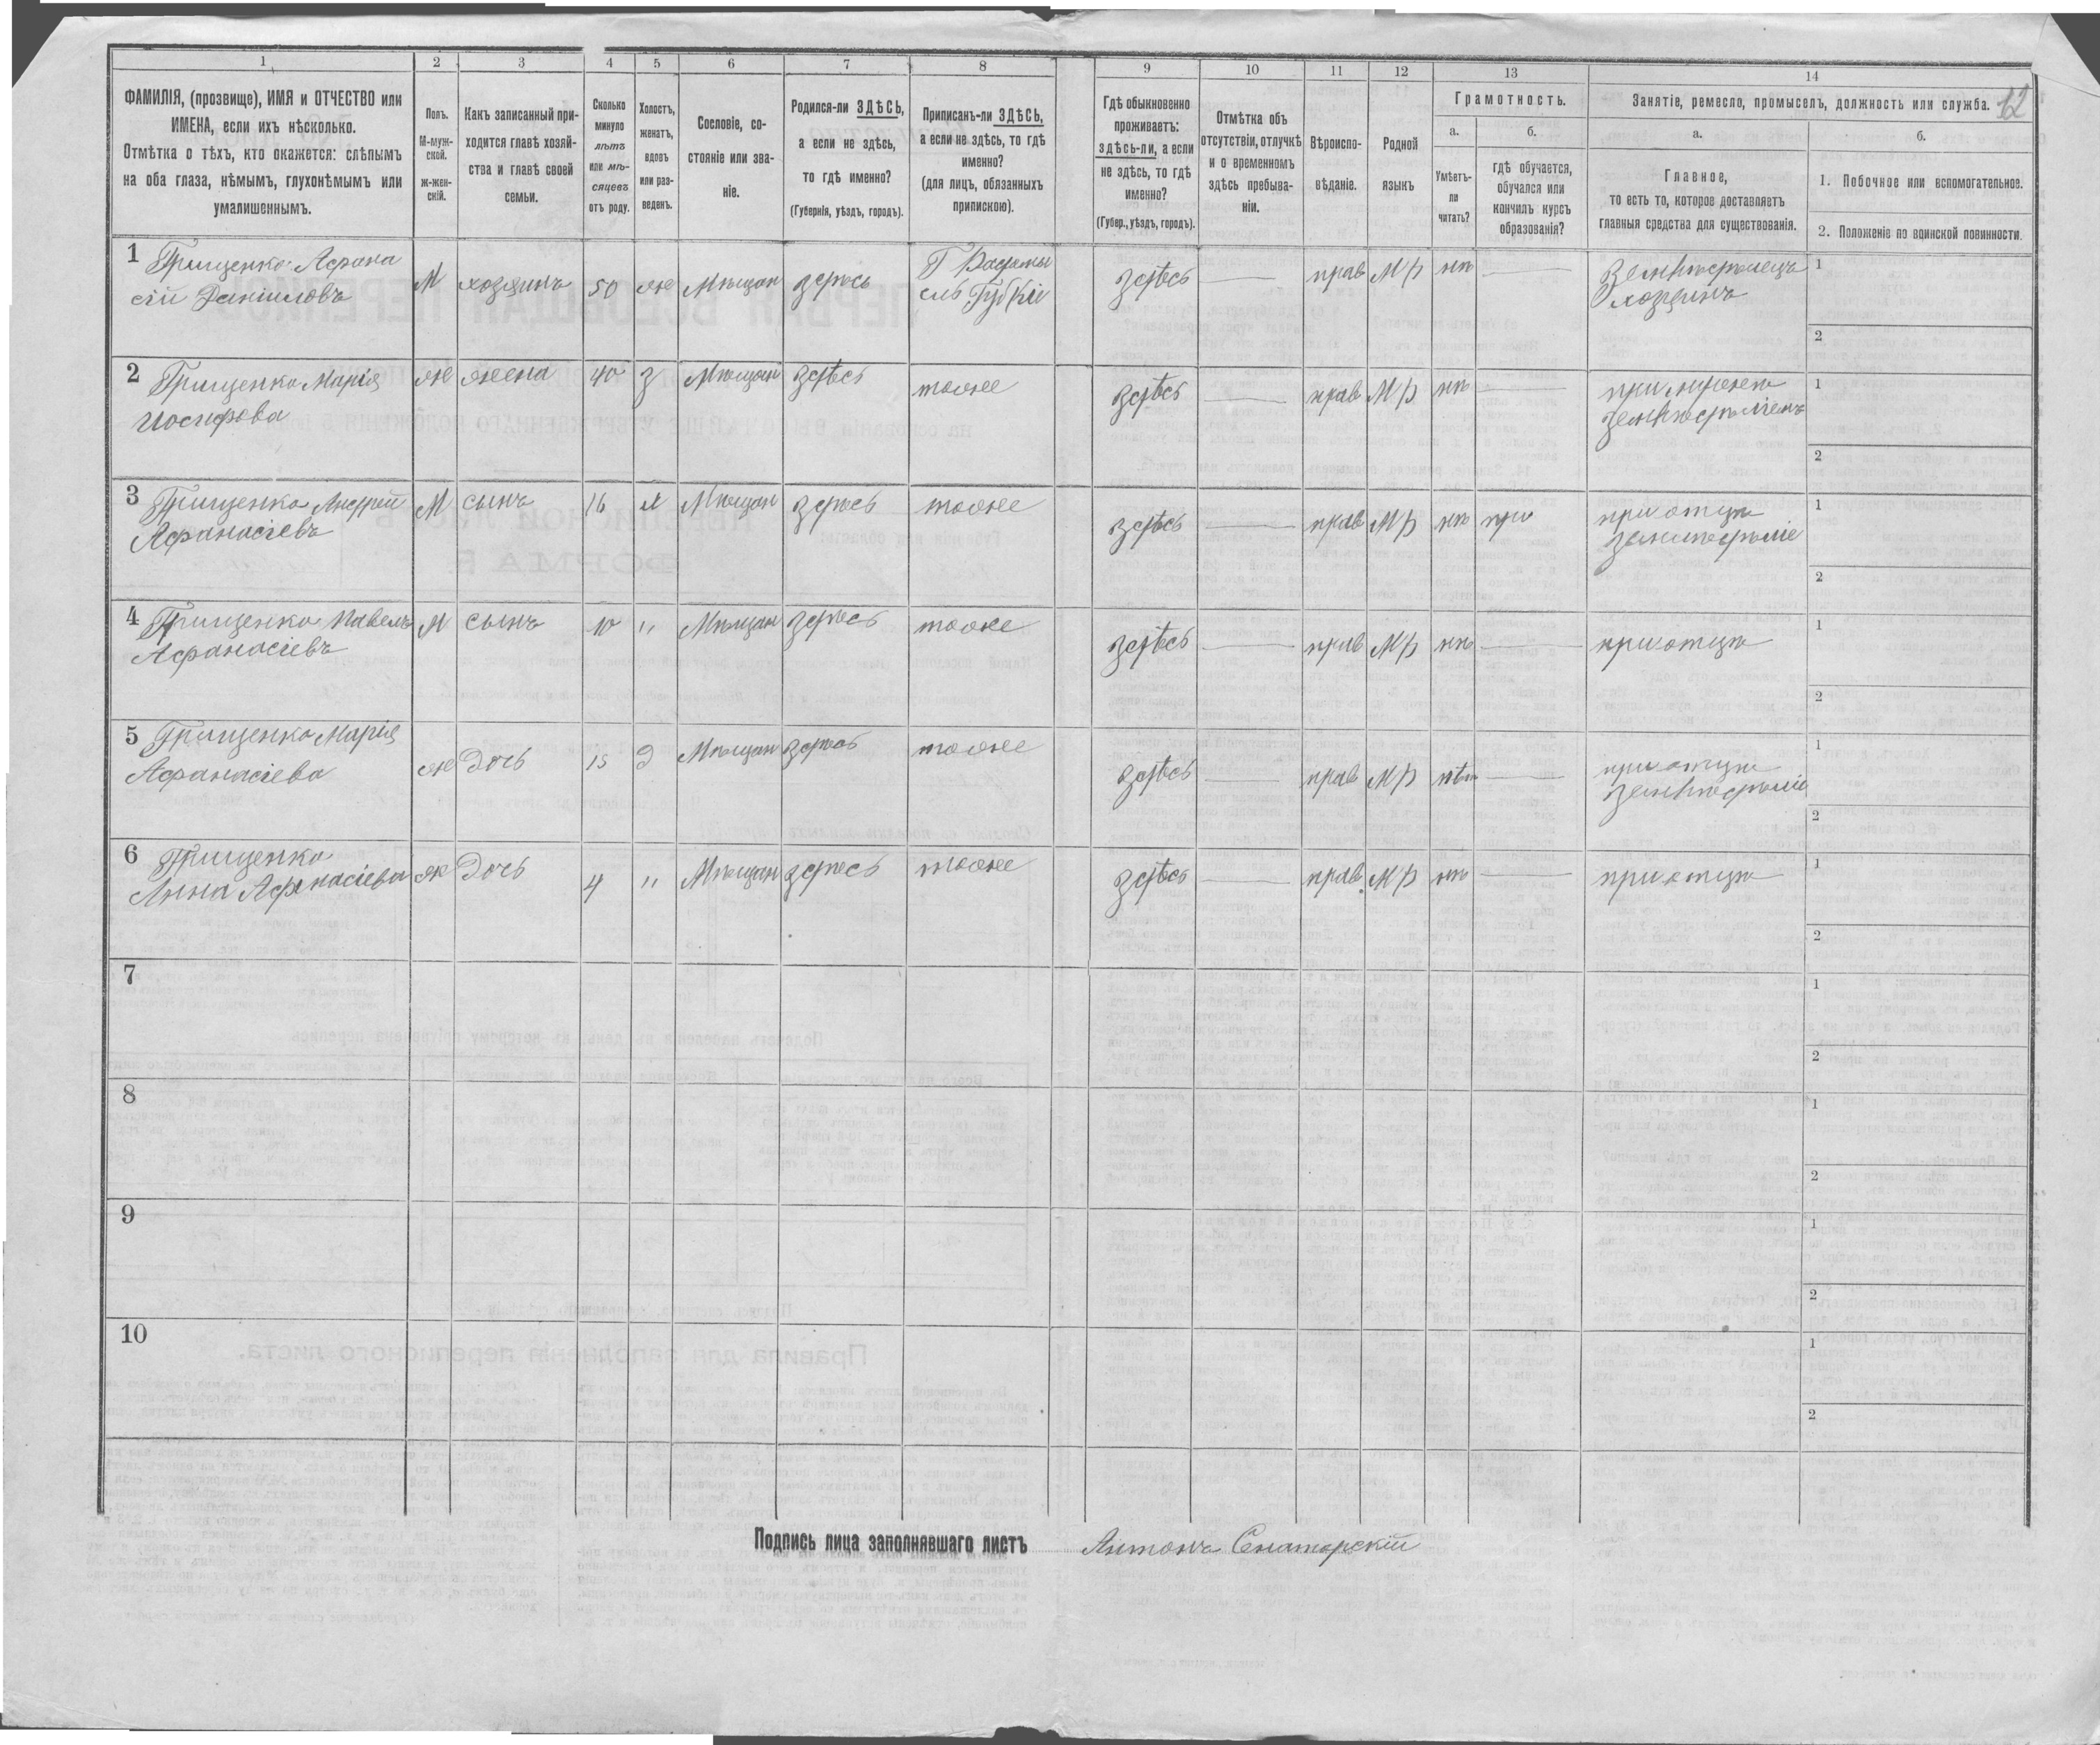 1
2
3
4
5
6
7
8
9
10
11
12
13
14
ФАМИЛІЯ, (прозвище), ИМЯ и ОТЧЕСТВО или
ИМЕНА, если ихъ нѣсколько.
Отмѣтка о тѣхъ, кто окажется: слѣпымъ
на оба глаза, нѣмымъ, глухонѣмымъ или
умалишеннымъ.
Полъ.
М-муж-
ской.
ж-жен-
скій.
Какъ записанный при-
ходится главѣ хозяй-
ства и главѣ своей
семьи.
Сколько
минуло
лѣтъ
или мѣ-
сяцевъ
отъ роду.
Холостъ,
женатъ,
вдовъ
или раз-
веденъ.
Сословіе, со-
стояніе или зва-
ніе.
Родился-ли ЗДѢСЬ,
а если не здѣсь,
то гдѣ именно?
(Губернія, уѣздъ, городъ).
Приписанъ-ли ЗДѢСЬ,
а если не здѣсь, то гдѣ
именно?
(для лицъ, обязанныхъ
припискою).
Гдѣ обыкновенно
проживаетъ:
здѣсь-ли, а если
не здѣсь, то гдѣ
именно?
(Губер., уѣздъ, городъ).
Отмѣтка объ
отсутствіи, отлучкѣ
и о временномъ
здѣсь пребыва-
ніи.
Вѣроиспо-
вѣданіе.
Родной
языкъ
Грамотность.
а.
Умѣетъ-
ли
читать?
б.
гдѣ обучается,
обучался или
кончилъ курсъ
образованія?
Занятіе, ремесло, промыселъ, должность или служба.
12
а.
Главное,
то есть то, которое доставляетъ
главныя средства для существованія.
б.
1. Побочное или вспомогательное.
2. Положеніе по воинской повинности.
1 Грищенко Афана
сій Даніиловъ
М
хозяинъ
50
же
Мѣщан
здѣсь
здѣсь
прав
М р
нѣ
Земледѣлецъ
хозяинъ
1
2
2 Грищенко Марія
Иосифова
же
жена
40
з
Мѣщан
здѣсь
тоже
здѣсь
прав
М р
нѣ
при мужѣ
1
2
3 Грищенко Андрей
Афанасіевъ
М
сынъ
16
Мѣщан
здѣсь
тоже
здѣсь
прав
М р
нѣ
при отцѣ
земледѣліе
1
2
4 Грищенко Павелъ
Афанасіевъ
М
сынъ
10
"
Мѣщан
здѣсь
тоже
здѣсь
прав
М р
нѣ
при отцѣ
1
2
5 Грищенко Марія
Афанасіева
же
Дочь
15
Мѣщан
здѣсь
тоже
здѣсь
прав
М р
нѣт
при отцѣ
земледѣліе
1
2
6 Грищенко
Анна Афанасіева
же
Дочь
4
"
Мѣщан
здѣсь
тоже
здѣсь
прав.
М р
нѣ
при отцѣ
1
2
7
1
2
8
1
2
9
1
2
10
1
2
Подпись лица заполнявшаго листъ
Антонъ Снаторскій